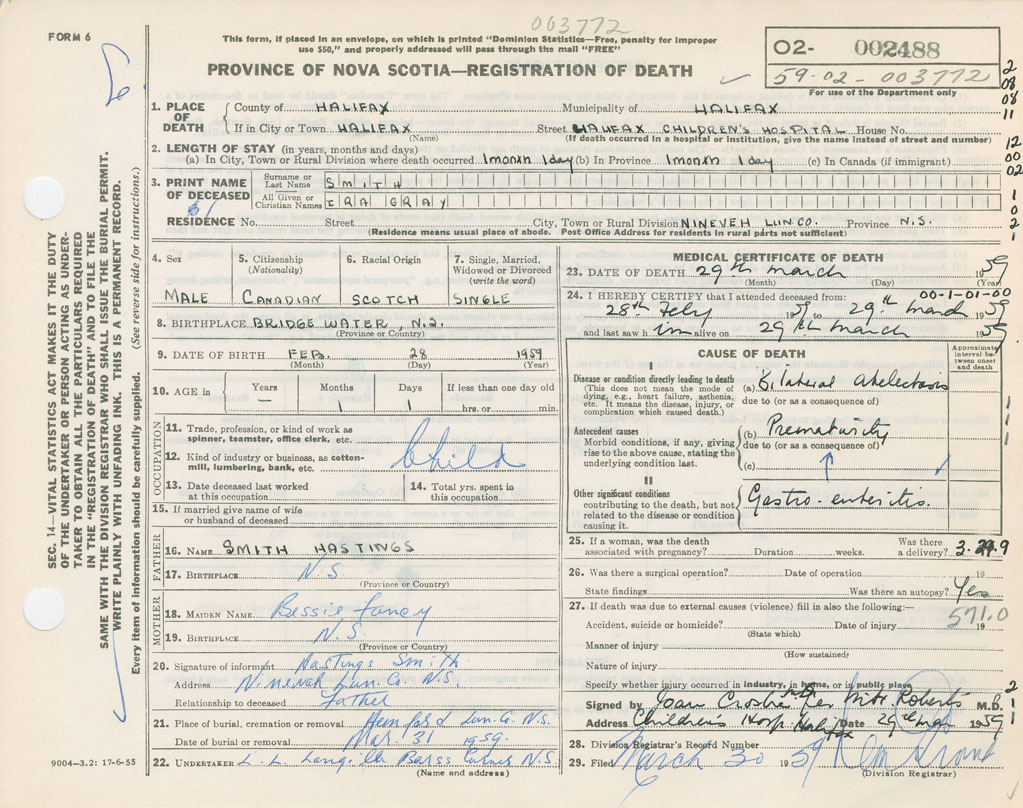 003772
FORM 6
This form, if placed in an envelope, on which is printed “Dominion Statistics—Free, penalty for improper
use $50,” and properly addressed will pass through the mail “FREE”
02- 002488
59-02-003772
For use of the Department only
PROVINCE OF NOVA SCOTIA—REGISTRATION OF DEATH
2
08
08
11
12
00
02
1
0
2
1
SEC. 14—VITAL STATISTICS ACT MAKES IT THE DUTY
OF THE UNDERTAKER OR PERSON ACTING AS UNDER-
TAKER TO OBTAIN ALL THE PARTICULARS REQUIRED
IN THE “REGISTRATION OF DEATH” AND TO FILE THE
SAME WITH THE DIVISION REGISTRAR WHO SHALL ISSUE THE BURIAL PERMIT.
WRITE PLAINLY WITH UNFADING INK. THIS IS A PERMANENT RECORD.
Every item of information should be carefully supplied. (See reverse side for instructions.)
1. PLACE OF DEATH
County of HALIFAX Municipality of HALIFAX
If in City or Town HALIFAX Street HALIFAX CHILDREN'S HOSPITAL House No.
(Name) (If death occurred in a hospital or Institution, give the name instead of street and number)
2. LENGTH OF STAY (in years, months and days)
(a) In City, Town or Rural Division where death occurred 1 month 1 day (b) In Province 1 month 1 day (c) In Canada (if immigrant)
3. PRINT NAME OF DECEASED
Surname or Last Name SMITH
All Given or Christian Names IRA GRAY
61
RESIDENCE No. Street City, Town or Rural Division NINEVEH LUN.CO. Province N.S.
(Residence means usual place of abode. Post Office Address for residents in rural parts not sufficient)
4. Sex
MALE
5. Citizenship
(Nationality)
CANADIAN
6. Racial Origin
SCOTCH
7. Single, Married,
Widowed or Divorced
(write the word)
SINGLE
8. BIRTHPLACE BRIDGEWATER, N.S.
(Province or Country)
9. DATE OF BIRTH FEB. 28 1959
(Month) (Day) (Year)
10. AGE in
Years Months Days If less than one day old
— 1 1 hrs. or min.
OCCUPATION
11. Trade, profession, or kind of work as
spinner, teamster, office clerk, etc.
12. Kind of industry or business, as cotton-
mill, lumbering, bank, etc.
Child
13. Date deceased last worked
at this occupation
14. Total yrs. spent in
this occupation
15. If married give name of wife
or husband of deceased
FATHER
16. NAME SMITH HASTINGS
17. BIRTHPLACE N.S.
(Province or Country)
MOTHER
18. MAIDEN NAME Bessie Fancy
19. BIRTHPLACE N.S.
(Province or Country)
20. Signature of informant Hastings Smith
Address Ninevah Lun. Co. N.S.
Relationship to deceased Father
21. Place of burial, cremation or removal Hemford Lun. Co. N.S.
Date of burial or removal Mar. 31 1959.
22. UNDERTAKER L. L. Langille Barss Corner N.S.
(Name and address)
9004—3.2: 17-6-55
MEDICAL CERTIFICATE OF DEATH
23. DATE OF DEATH 29th March 1959
(Month) (Day) (Year)
24. I HEREBY CERTIFY that I attended deceased from: 00-1-01-00
28th Feby 1959 to 29th March 1959
and last saw him alive on 29th March 1959
CAUSE OF DEATH
Approximate
interval be-
tween onset
and death
I
Disease or condition directly leading to death
(This does not mean the mode of
dying, e.g., heart failure, asthenia,
etc. It means the disease, injury, or
complication which caused death.)
(a) Bilateral Atelectasis
due to (or as a consequence of)
Antecedent causes
Morbid conditions, if any, giving
rise to the above cause, stating the
underlying condition last.
(b) Prematurity
due to (or as a consequence of)
(c)
1
1
II
Other significant conditions
contributing to the death, but not
related to the disease or condition
causing it.
Gastro-enteritis.
25. If a woman, was the death
associated with pregnancy? Duration weeks. Was there
a delivery?
26. Was there a surgical operation? Date of operation 19
State findings Was there an autopsy? Yes
27. If death was due to external causes (violence) fill in also the following:—
571.0
Accident, suicide or homicide? Date of injury 19
(State which)
Manner of injury
(How sustained)
Nature of injury
Specify whether injury occurred in industry, in home, or in public place
Signed by Joan Crosbie per Roberts M.D.
2
1
Address Children's Hosp. Halifax Date 29th Mar 1959
28. Division Registrar's Record Number
29. Filed March 30 1959
(Division Registrar)